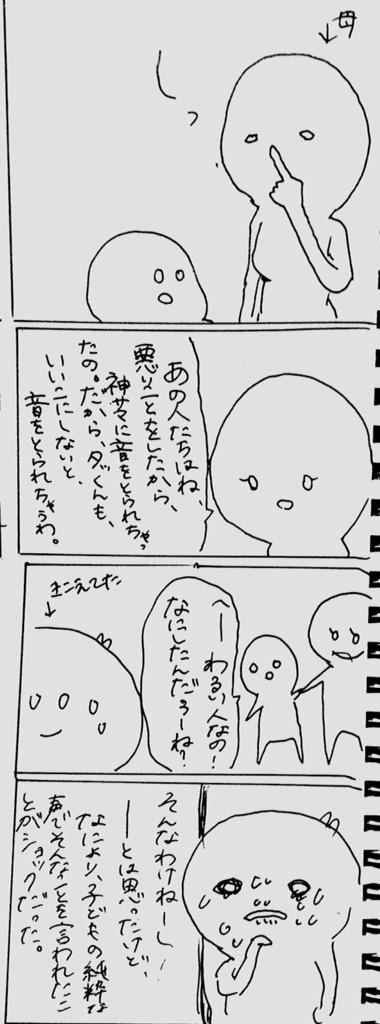 母
し
っ
あの人たちはね、
悪いことをしたから、
神サマに音をとられちゃっ
たの。だから、ダッくんも、
いいこにしないと、
音をとられちゃうわ。
へーーわるい人なの!
なにしたんだろーね?
きこえてた
そんなわけねーし!
――とは思ったけど、
なにより、子どもの純粋な
声でそんなことを言われたこ
とがショックだった。